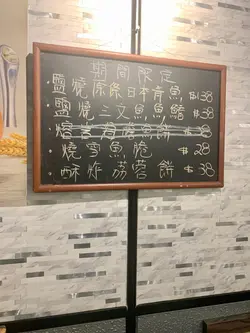 期間限定
·鹽燒原條日本青魚 $138
·鹽燒三文魚魚鮫 $38
$38
·燒雪魚脆 $28
·酥炸蒟蒻餅 $38